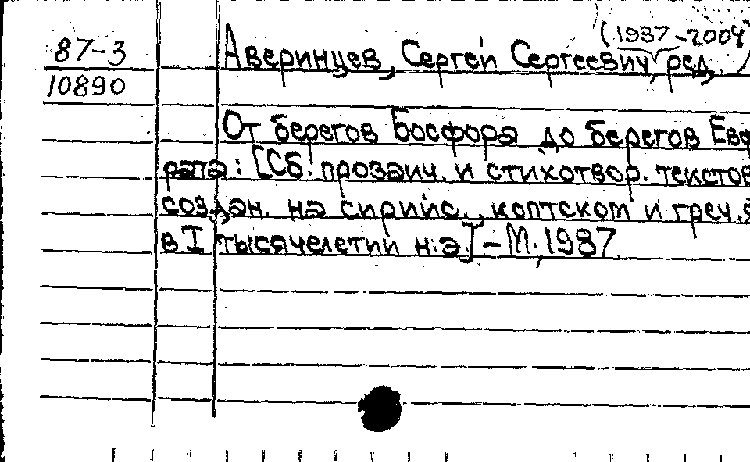 (1937-2004)
87-3 Аверинцев, Сергей Сергеевич, ред.
10890
От берегов Босфора до берегов Евф
рата: [Сб. прозаич. и стихотвор. текстов
создан. на сирийс., коптском и греч. я
в I тысячелетии н.э.] - М., 1987